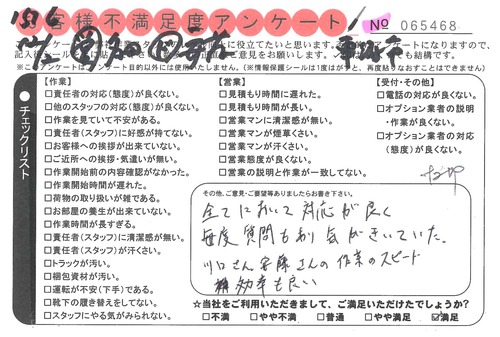 お客様不満足度アンケート
No 065468
このアンケートは
【作業】
□責任者の対応(態度)が良くない。
□他のスタッフの対応(態度)が良くない。
□作業を見ていて不安がある。
□責任者(スタッフ)に好感が持てない。
□お客様への挨拶が出来ていない。
□ご近所への挨拶・気遣いが無い。
□作業開始前の内容確認がなかった。
□作業開始時間が遅れた。
□荷物の取り扱いが雑である。
□お部屋の養生が出来ていない。
□作業時間が長すぎる。
□責任者(スタッフ)に清潔感が無い。
□責任者(スタッフ)が汗くさい。
□トラックが汚い。
□梱包資材が汚い。
□運転が不安(下手)である。
□靴下の履き替えをしてない。
□スタッフにやる気がみられない。
【営業】
□見積もり時間に遅れた。
□見積もり時間が長い。
□営業マンに清潔感が無い。
□営業マンが煙草くさい。
□営業マンが汗くさい。
□営業態度が良くない。
□営業の説明と作業が一致してない。
【受付・その他】
□電話の対応が良くない。
□オプション業者の説明
・作業が良くない。
□オプション業者の対応
(態度)が良くない。
チェックリスト
その他、ご意見・ご要望等ありましたらお書き下さい。
全てにおいて対応が良く
毎度質問もあり気がきいていた。
川口さん安藤さんの作業のスピード
効率も良い
☆当社をご利用いただきまして、ご満足いただけたでしょうか?
□不満 □やや不満 □普通 □やや満足 ☑満足